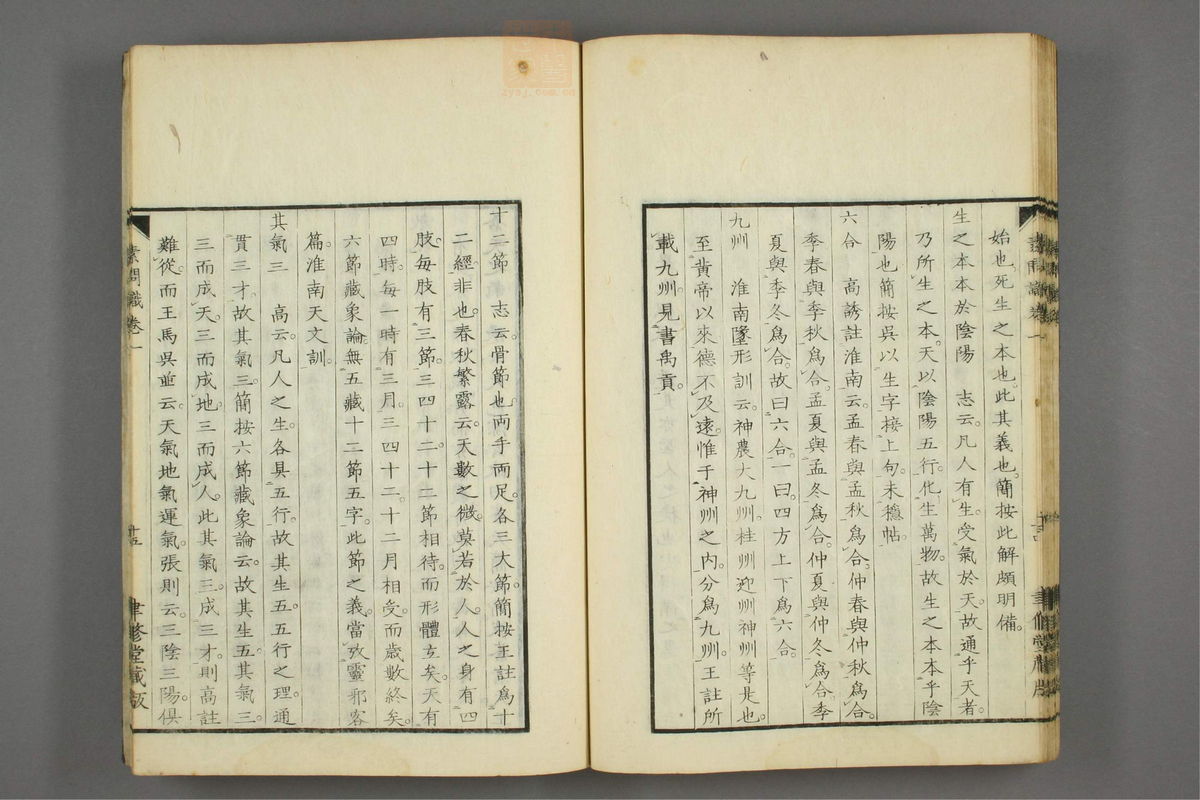 始也死生之本也此其義也簡按此解頗明備
生之本本於陰陽　志云凡人有生受氣於天故通乎天者
乃所生之本天以陰陽五行化生萬物故生之本本乎陰
陽也簡按吳以生字接上句未穩帖
六合　高誘註淮南云孟春與孟秋爲合仲春與仲秋爲合
季春與季秋爲合孟夏與孟冬爲合仲夏與仲冬爲合季
夏與季冬爲合故曰六合一曰四方上下爲六合
九州　淮南墬形訓云神農大九州桂州迎州神州等是也
至黃帝以來德不及遠惟于神州之內分爲九州王註所
載九州見書禹貢
十二節　志云骨節也兩手兩足各三大節簡按王註爲十
二經非也春秋繁露云天數之微莫若於人人之身有四
肢每肢有三節三四十二十二節相待而形體立矣天有
四時每一時有三月三四十二十二月相受而歲數終矣
六節藏象論無五藏十二節五字此節之義當攷靈邪客
篇淮南天文訓
其氣三　高云凡人之生各具五行故其生五五行之理通
貫三才故其氣三簡按六節藏象論云故其生五其氣三
三而成天三而成地三而成人此其氣三成三才則高註
難從而王馬吳並云天氣地氣運氣張則云三陰三陽俱
素問識卷一
十五
聿修堂藏版
zysj.com.cn